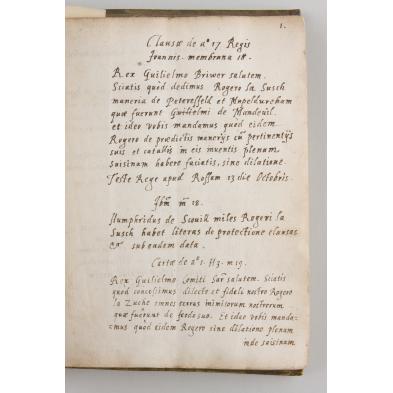 1.
Clausæ de aº 17 Regis
Joannis. membrana 18.
Rex Guilielmo Briwer salutem.
Sciatis quòd dedimus Rogero la Susch
maneria de Petersfeld et Mapeldurcham
quæ fuerunt Guilielmi de Mandevil.
et ideo vobis mandamus quòd eidem
Rogero de prædictis manerijs cū pertinentijs
suis et catallis in eis inventis plenam
saisinam habere faciatis, sine dilatione.
Teste Rege apud Roffam 13 die Octobris.
Ibm m 18.
Humphridus de Scovill miles Rogeri la
Susch habet literas de protectione clausas
sub eadem data.
Cartæ de aº 1. H3. m 19.
Rex Guilielmo Comiti Sar salutem. Sciatis
quod concessimus dilecto et fideli nostro Rogero
la Zuche omnes terras inimicorum nostrorum
quæ fuerunt de feodo suo. Et ideo vobis manda=
=mus quòd eidem Rogero sine dilatione plenam
inde saisinam